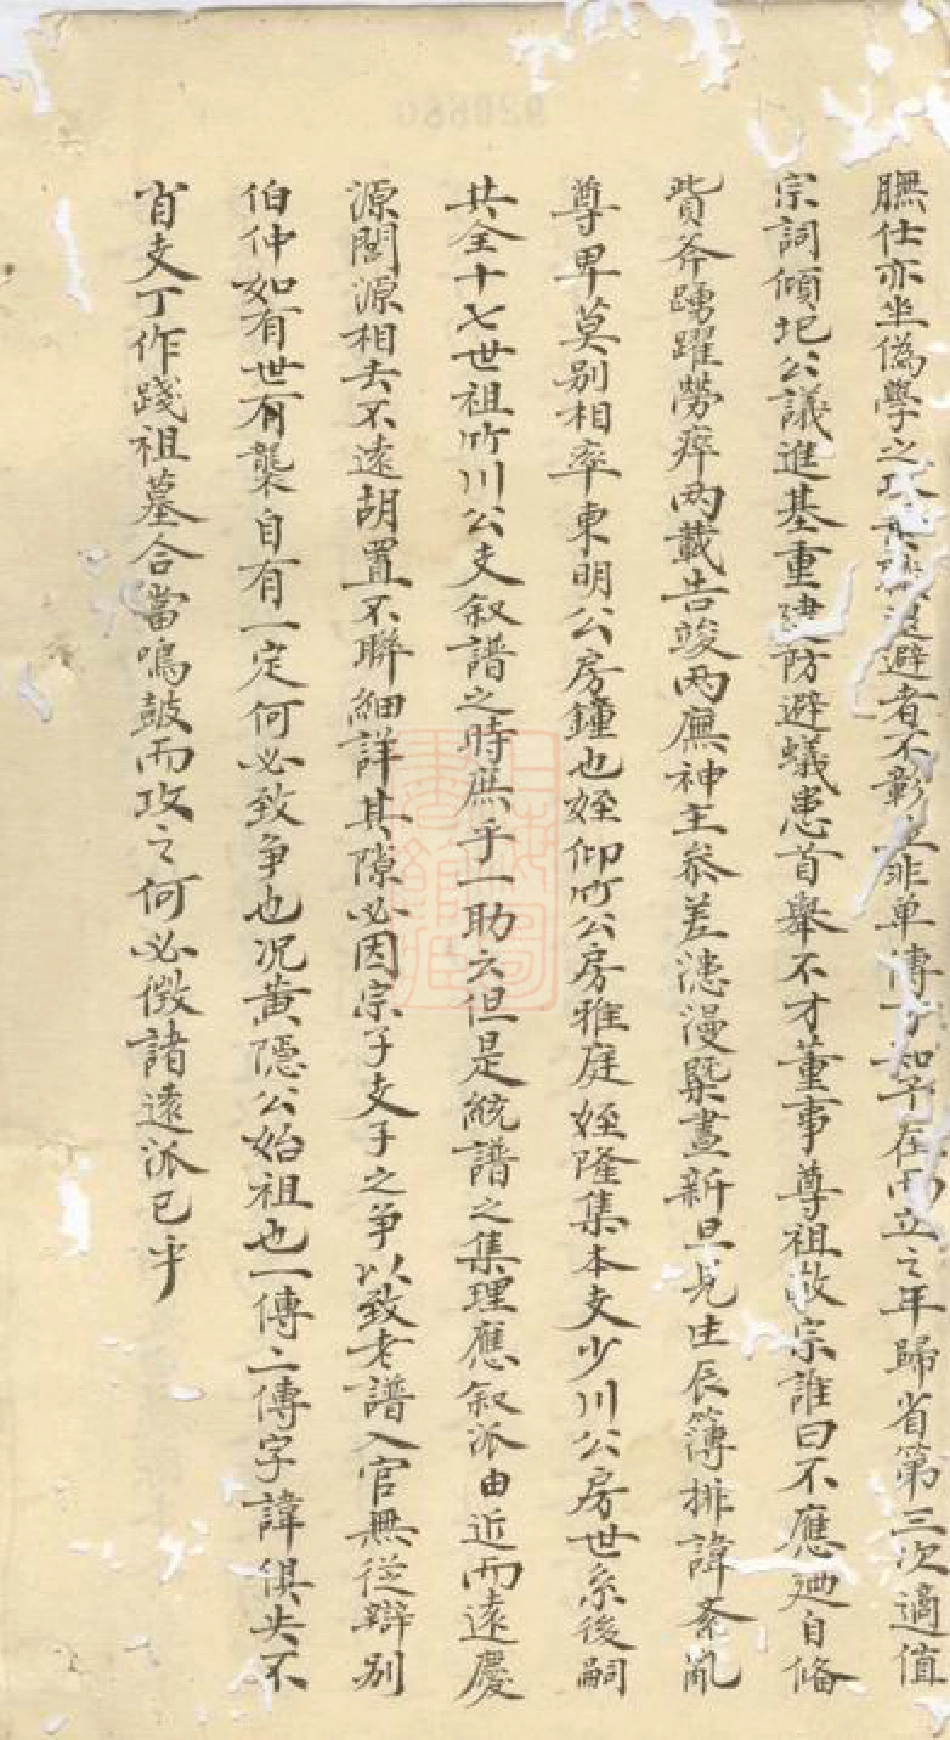 膴仕亦坐偽學之退避者不彰之非单傳于知予在而立之年歸省第三次適值
宗詞傾圯公議進基重建防避蟻患首舉不才董事尊祖敬宗誰曰不應廼自俻
貲斧踴躍勞瘁両載告竣両廡神主叅差漶漫槩晝新旦見生辰簿排諱紊亂
尊卑莫别相率東明公房鐘也姪仰竹公房雅庭姪隆集本支少川公房世系後嗣
共全十七世祖竹川公支叙譜之時庶乎一助云但是統譜之集理應叙派由近而遠慶
源闇源相去不遠胡置不聨細詳其隙必因宗子支子之争以致老譜入官無従辯别
伯仲如有世有襲自有一定何必致争也况黄隠公始祖也一傳二傳字諱俱失不
肖支丁作踐祖墓合當鳴皷而攻之何必徴諸逺派已乎